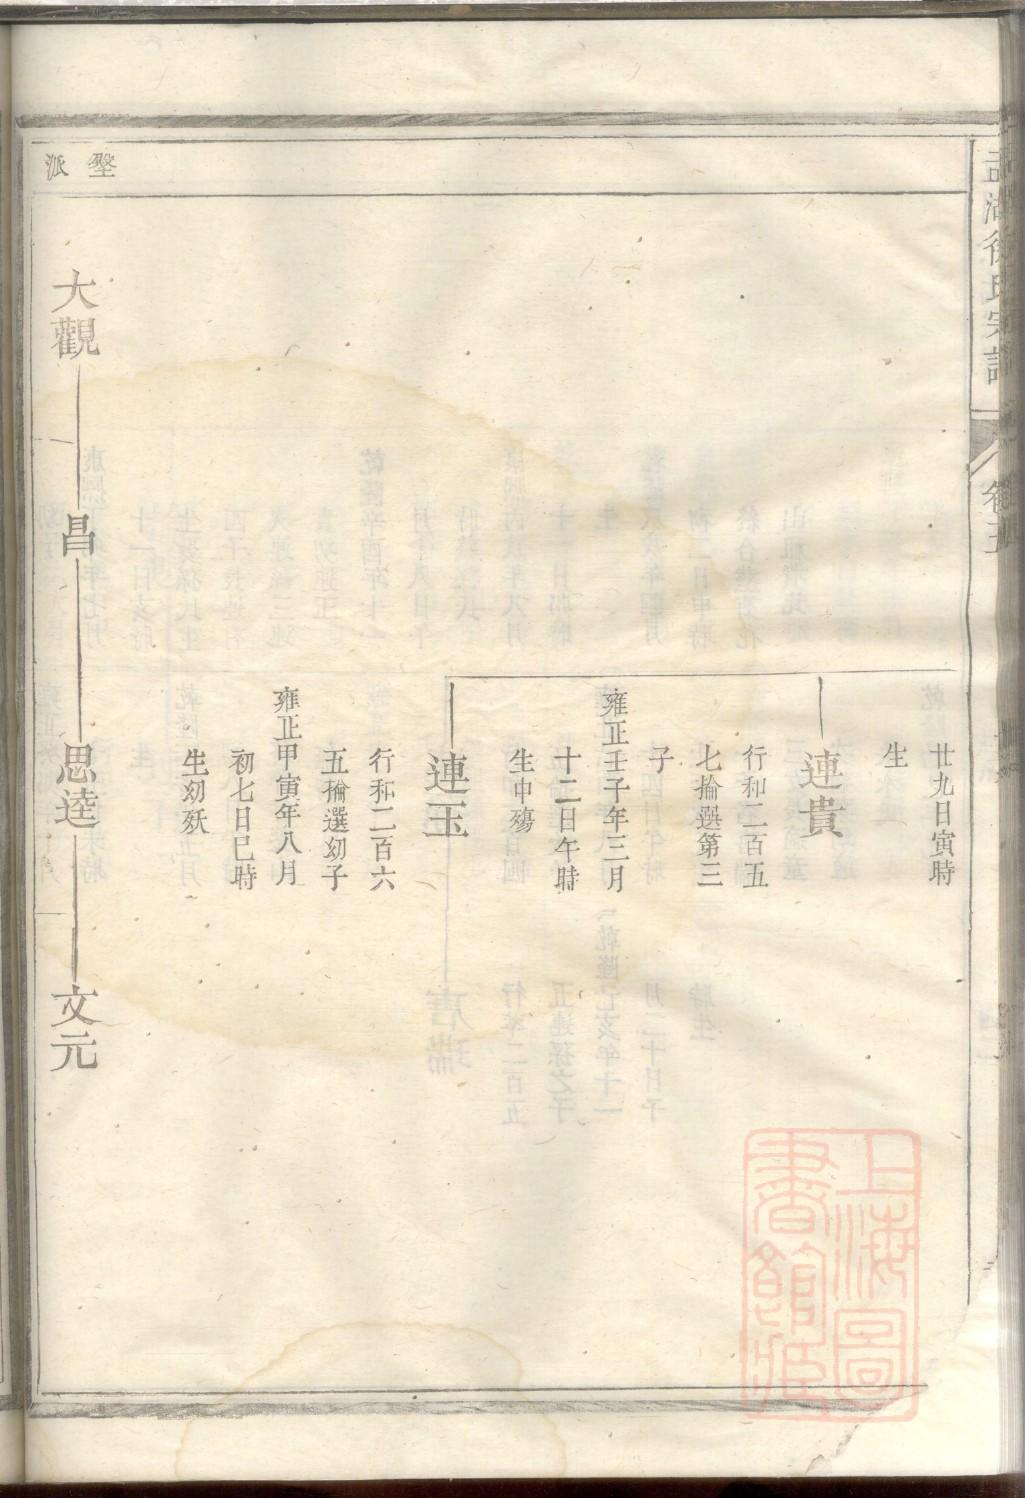 孟湖徐氏宗譜
卷五
廿九日寅時
生
連貴
行和二百五
七掄選第三
子
雍正壬子年三月
十二日午時
生中殤
連玉
行和二百六
五掄選幼子
雍正甲寅年八月
初七日巳時
生幼殀
大觀
昌
思逵
文元
派
上海圖
書館藏